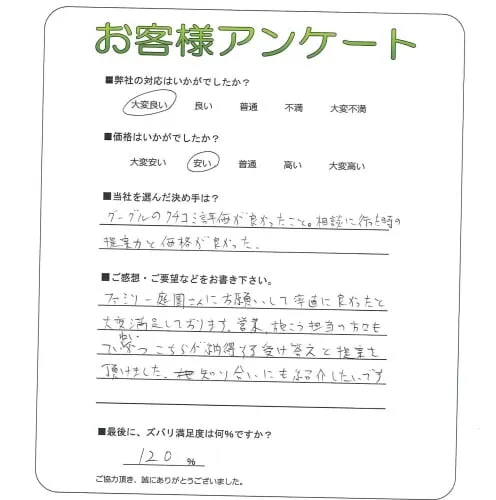 お客様アンケート
■弊社の対応はいかがでしたか？
大変良い 良い 普通 不満 大変不満
■価格はいかがでしたか？
大変安い 安い 普通 高い 大変高い
■当社を選んだ決め手は？
グーグルのクチコミ評価が良かったこと。相談に行った時の
提案力と価格が良かった。
■ご感想・ご要望などをお書き下さい。
ファミリー庭園さんにお願いして率直に良かったと
大変満足しております。営業、施こう担当の方々も
こちらが納得する受け答えと提案を
頂けました。知り合いにも紹介したいです
■最後に、ズバリ満足度は何％ですか？
120 %
ご協力頂き、誠にありがとうございました。